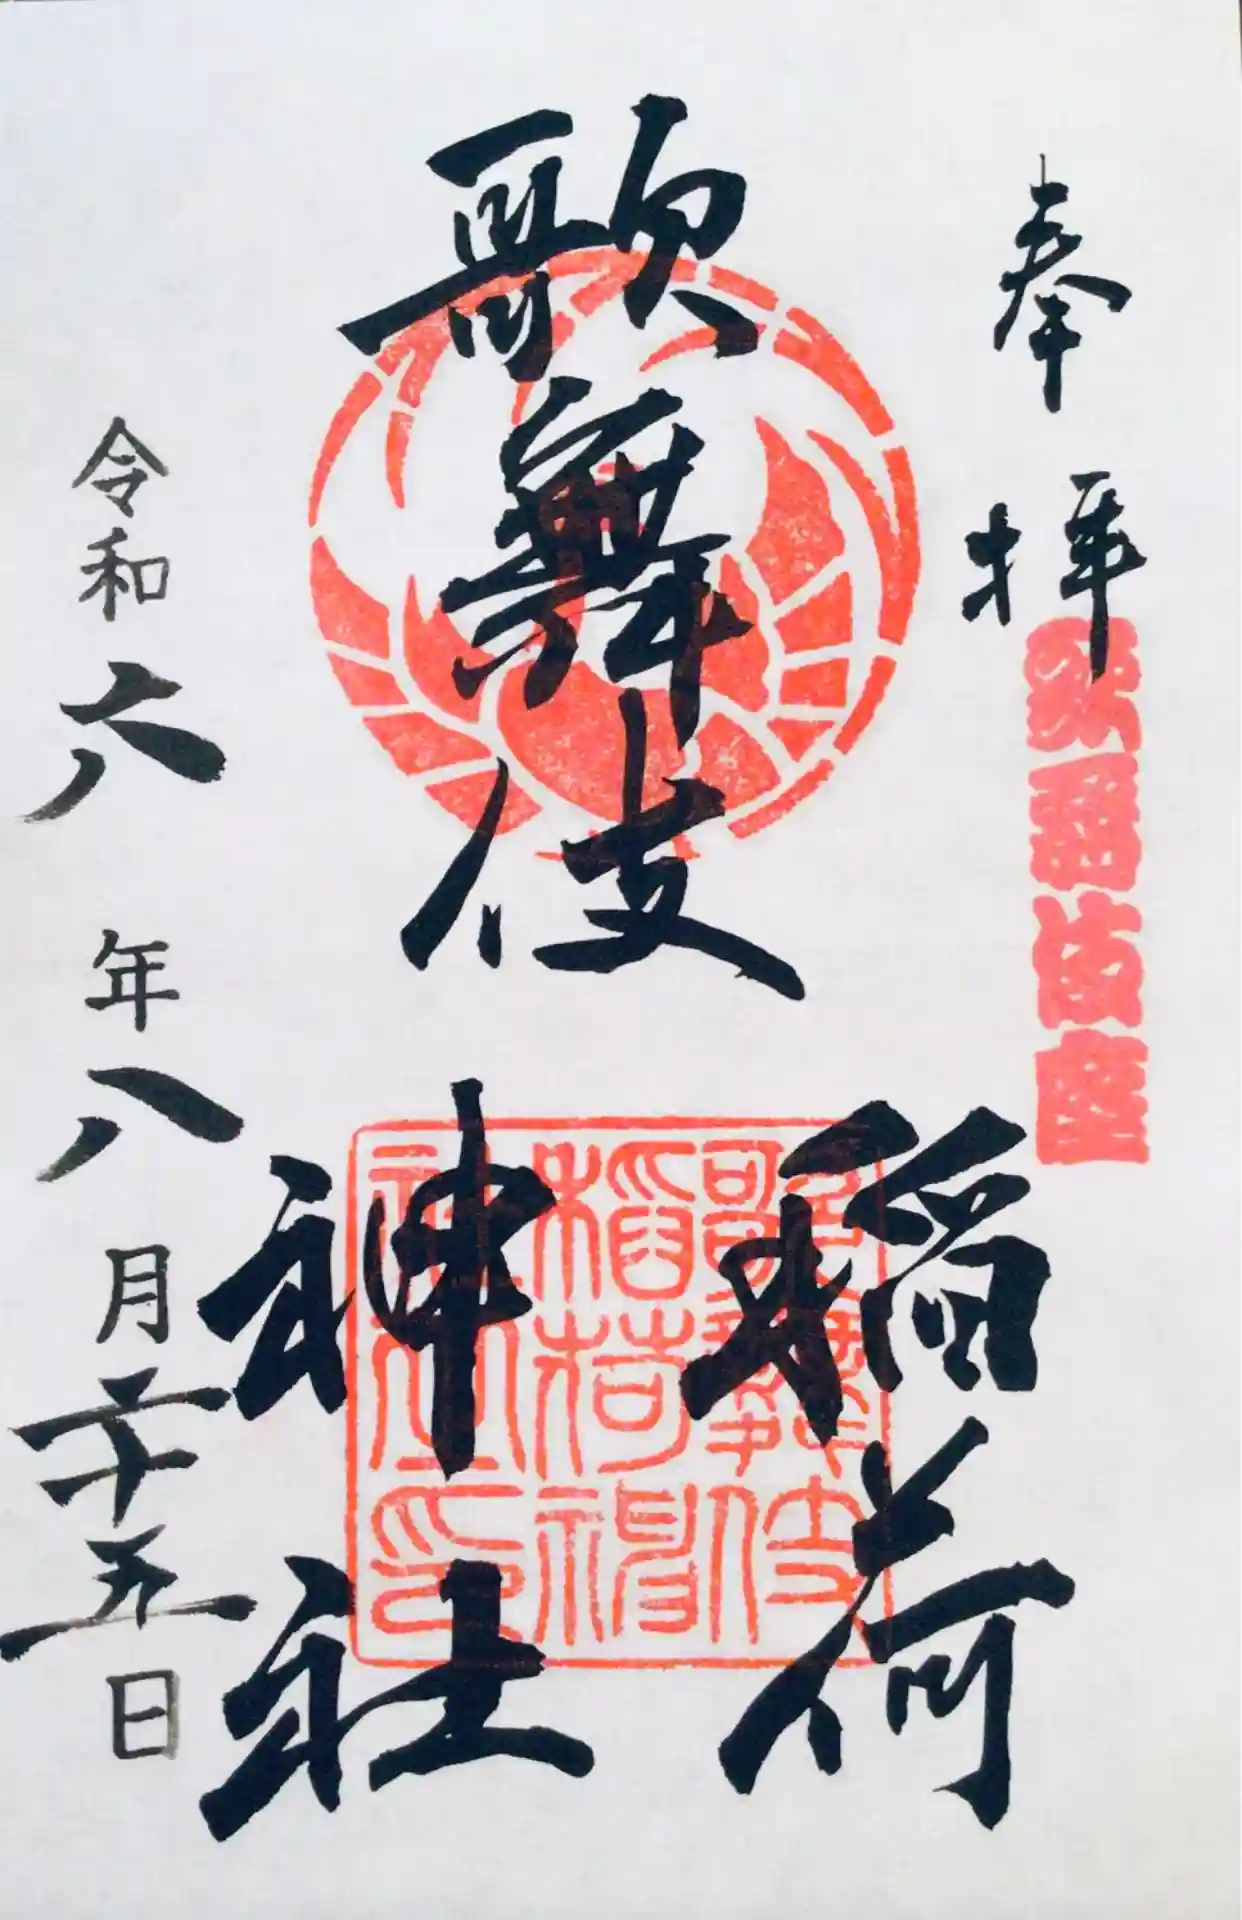 奉拝
歌舞伎座
歌舞伎
稲荷
神社
歌舞伎
稲荷神
社印
令和六年八月二十五日